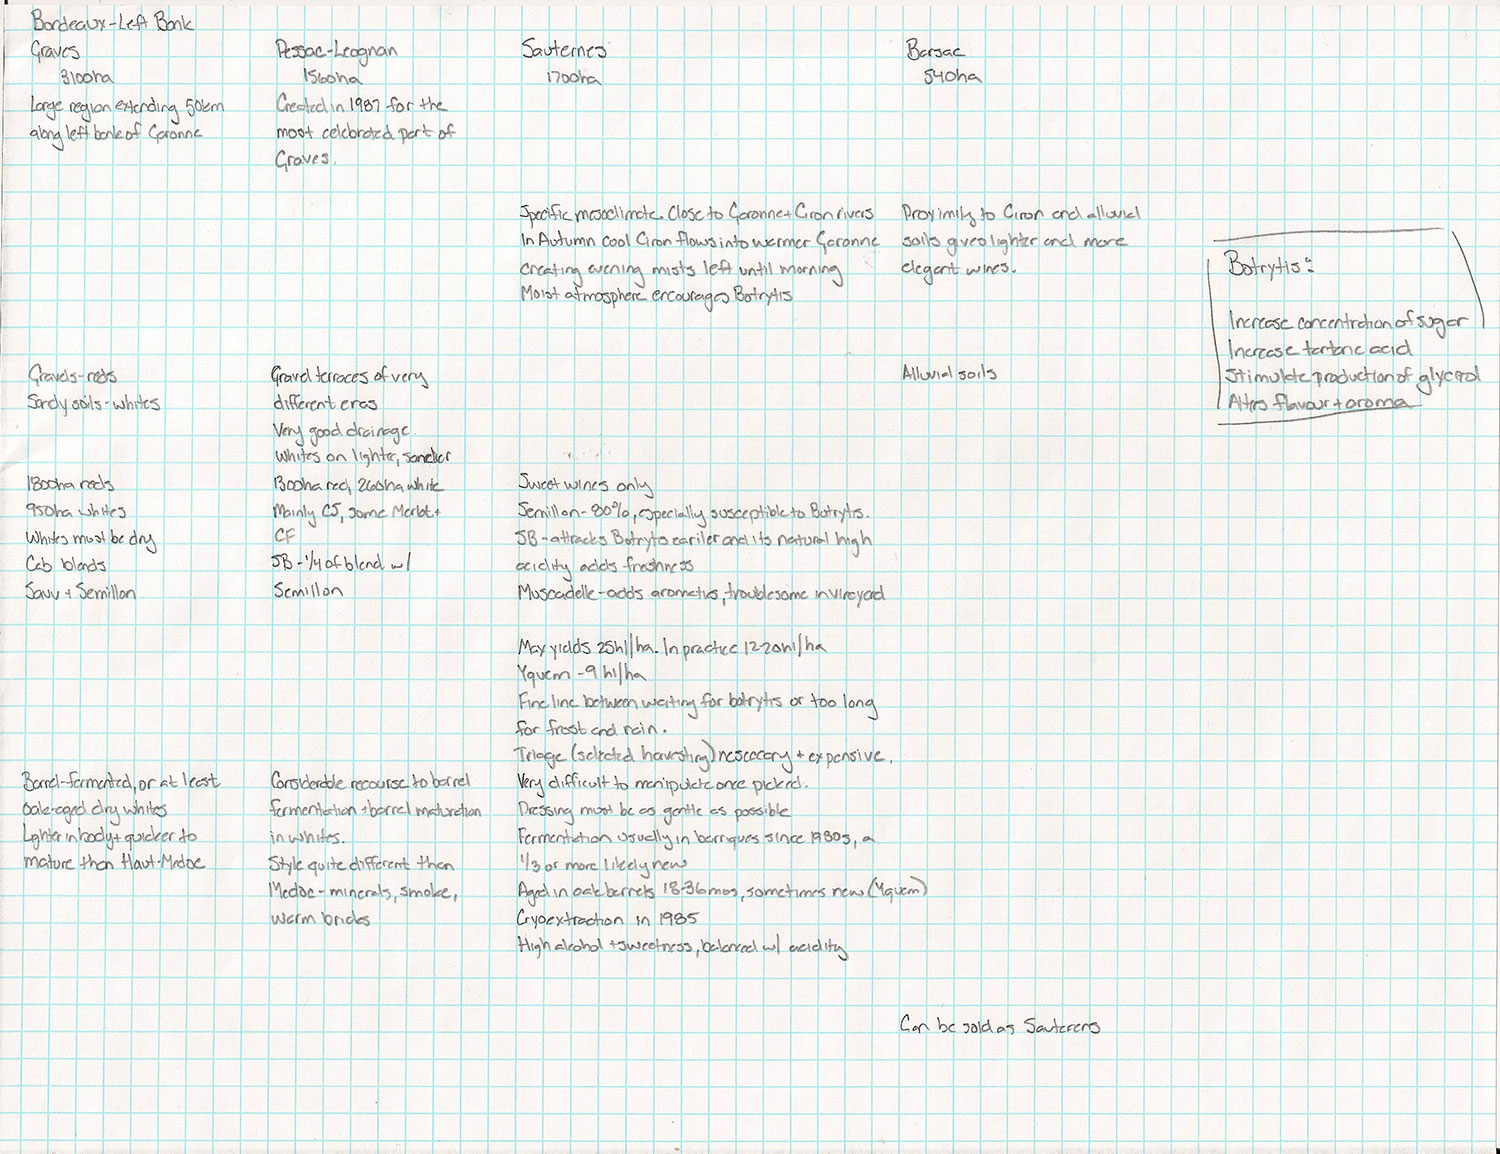 Bordeaux-Left Bank
Graves
3100ha
Large region extending 50km
along left bank of Garonne
Gravels-reds
Sandy soils-whites
1800ha reds
950ha whites
Whites must be dry
Cab blends
Sauv + Semillon
Barrel-fermented, or at least
oak-aged dry whites
Lighter in body + quicker to
mature than Haut-Medoc
Pessac-Leognan
1560ha
Created in 1987 for the
most celebrated part of
Graves.
Gravel terraces of very
different eras
Very good drainage.
Whites on lighter, sandier
1300ha red, 260ha white
Mainly CS, some Merlot +
CF
SB - 1/4 of blend w/
Semillon
Considerable recourse to barrel
fermentation + barrel maturation
in whites.
Style quite different than
Medoc - minerals, smoke,
warm bricks
Sauternes
1700ha
Specific mesoclimate. Close to Garonne + Ciron rivers
In Autumn cool Ciron flows into warmer Garonne
creating evening mists left until morning
Moist atmosphere encourages Botrytis
Sweet wines only
Semillon - 80%, especially susceptible to Botrytis.
SB - attracks Botrytis eariler and its natural high
acidity adds freshness
Muscadelle - adds aromatics, troublesome in vineyard
Max yields 25hl/ha. In practice 12-20hl/ha
Yquem - 9 hl/ha
Fine line between waiting for botrytis or too long
for frost and rain.
Triage (selected harvesting) nescecary + expensive.
Very difficult to manipulate once picked.
Pressing must be as gentle as possible
Fermentation usually in barriques since 1980s, a
1/3 or more likely new
Aged in oak barrels 18-36mos, sometimes new (Yquem)
Cryoextraction in 1985
High alcohol + sweetness, balanced w/ acidity
Barsac
540ha
Proximity to Ciron and alluvial
soils gives lighter and more
elegant wines.
Alluvial soils
Can be sold as Sauterens
Botrytis:
Increase concentration of sugar
Increase tartaric acid
Stimulate production of glycerol
Alters flavour + aroma